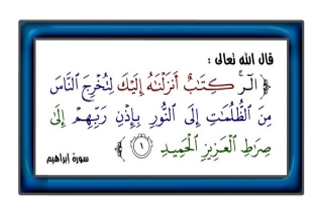 قال الله تعالى :
﴿ الٓرۚ كِتَٰبٌ أَنزَلْنَٰهُ إِلَيْكَ لِتُخْرِجَ ٱلنَّاسَ
مِنَ ٱلظُّلُمَٰتِ إِلَى ٱلنُّورِ بِإِذْنِ رَبِّهِمْ إِلَىٰ
صِرَٰطِ ٱلْعَزِيزِ ٱلْحَمِيدِ ١ ﴾ سورة إبراهيم